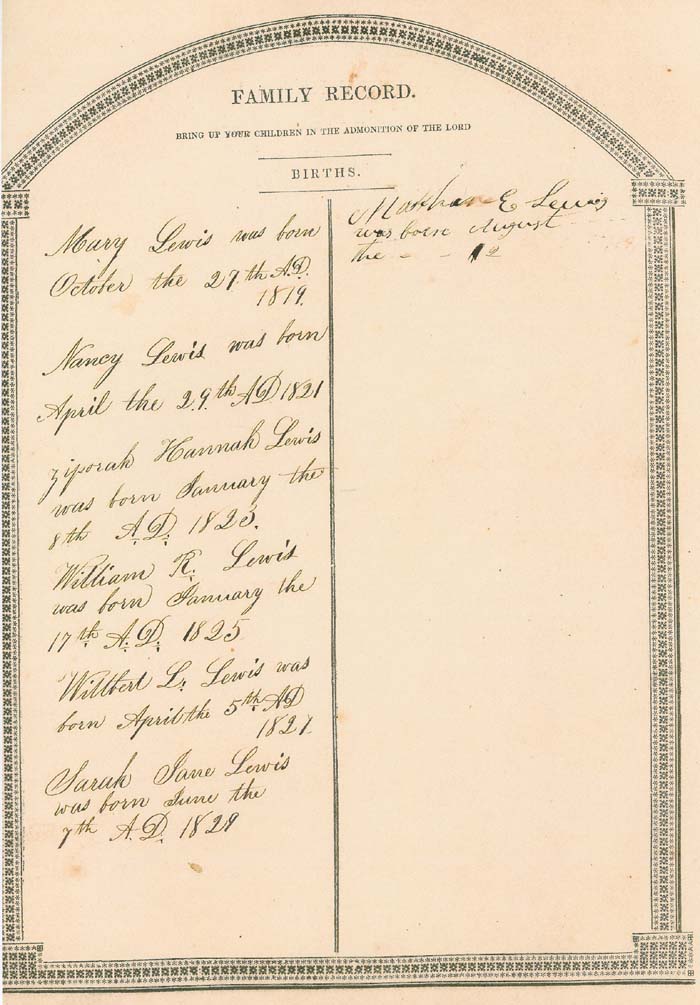 FAMILY RECORD.
BRING UP YOUR CHILDREN IN THE ADMONITION OF THE LORD
BIRTHS.
Mary Lewis was born
October the 27.th A.D.
1819.
Nancy Lewis was born
April the 29.th AD 1821
Ziporah Hannah Lewis
was born January the
8th A.D. 1823.
William R. Lewis
was born January the
17th A.D. 1825
Willbert L. Lewis was
born April the 5th AD
1827.
Sarah Jane Lewis
was born June the
7th A.D. 1829
E Lewis
was born August
the - - 12